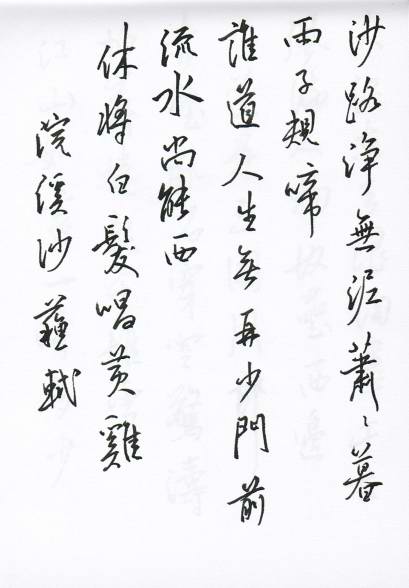 沙路淨無泥蕭〻暮
雨子規啼
誰道人生無再少門前
流水尚能西
休將白髮唱黃雞
浣溪沙蘇軾